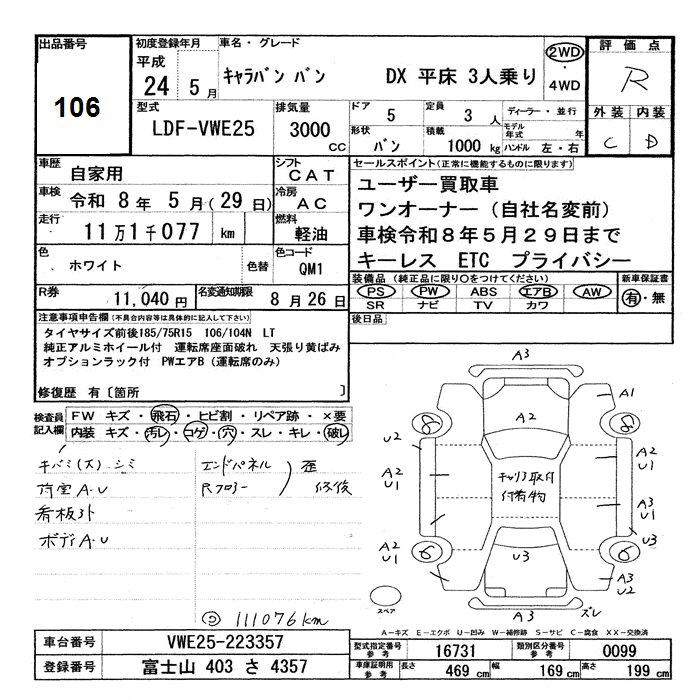 出品番号
106
初度登録年月
平成
24年 5月
車名・グレード
キャラバン バン DX 平床 3人乗り
2WD
・
4WD
評価点
R
外装 内装
C D
型式
LDF-VWE25
排気量
3000
CC
ドア
5
定員
3人
ディーラー・並行
モデル年式 年
形状
バン
積載
1000kg
ハンドル 左・右
車歴
自家用
シフト
CAT
車検
令和 8年 5月(29日)
冷房
AC
走行
11万1千077 km
燃料
軽油
色
ホワイト
色替
色コード
QM1
R券
11,040円
名変通知期限
8月26日
セールスポイント(正常に機能するものに限ります)
ユーザー買取車
ワンオーナー(自社名変前)
車検令和8年5月29日まで
キーレス ETC プライバシー
装備品(純正品に限り〇をつけてください)
PS PW ABS エアB AW
SR ナビ TV カワ
新車保証書
有・無
後日品
注意事項申告欄(不具合内容等は具体的に記入して下さい)
タイヤサイズ前後185/75R15 106/104N LT
純正アルミホイール付 運転席座面破れ 天張り黄ばみ
オプションラック付 PWエアB(運転席のみ)
修復歴 有〔箇所 〕
検査員記入欄
FW キズ・飛石・ヒビ割・リペア跡・×要
内装 キズ・汚レ・コゲ・穴・スレ・キレ・破レ
キバミ(大)・シミ
荷室A・U
看板外
ボディA・U
エンドパネル
Rフロアー
歪
修復
111076km
A3
A1
A2
8
8
U2
A2
U1
A2
U1
キャリア取付
付着物
A3
U1
U3
A2
U1
6
6
U3
A3
U2
スペア
A3
ズレ
A－キズ E－エクボ U－凹み W－補修跡 S－サビ C－腐食 XX－交換済
車台番号
VWE25-223357
登録番号
富士山 403 さ 4357
型式指定番号
参考
16731
類別区分番号
参考
0099
車庫証明用
参考
長さ
469cm
幅
169cm
高さ
199cm